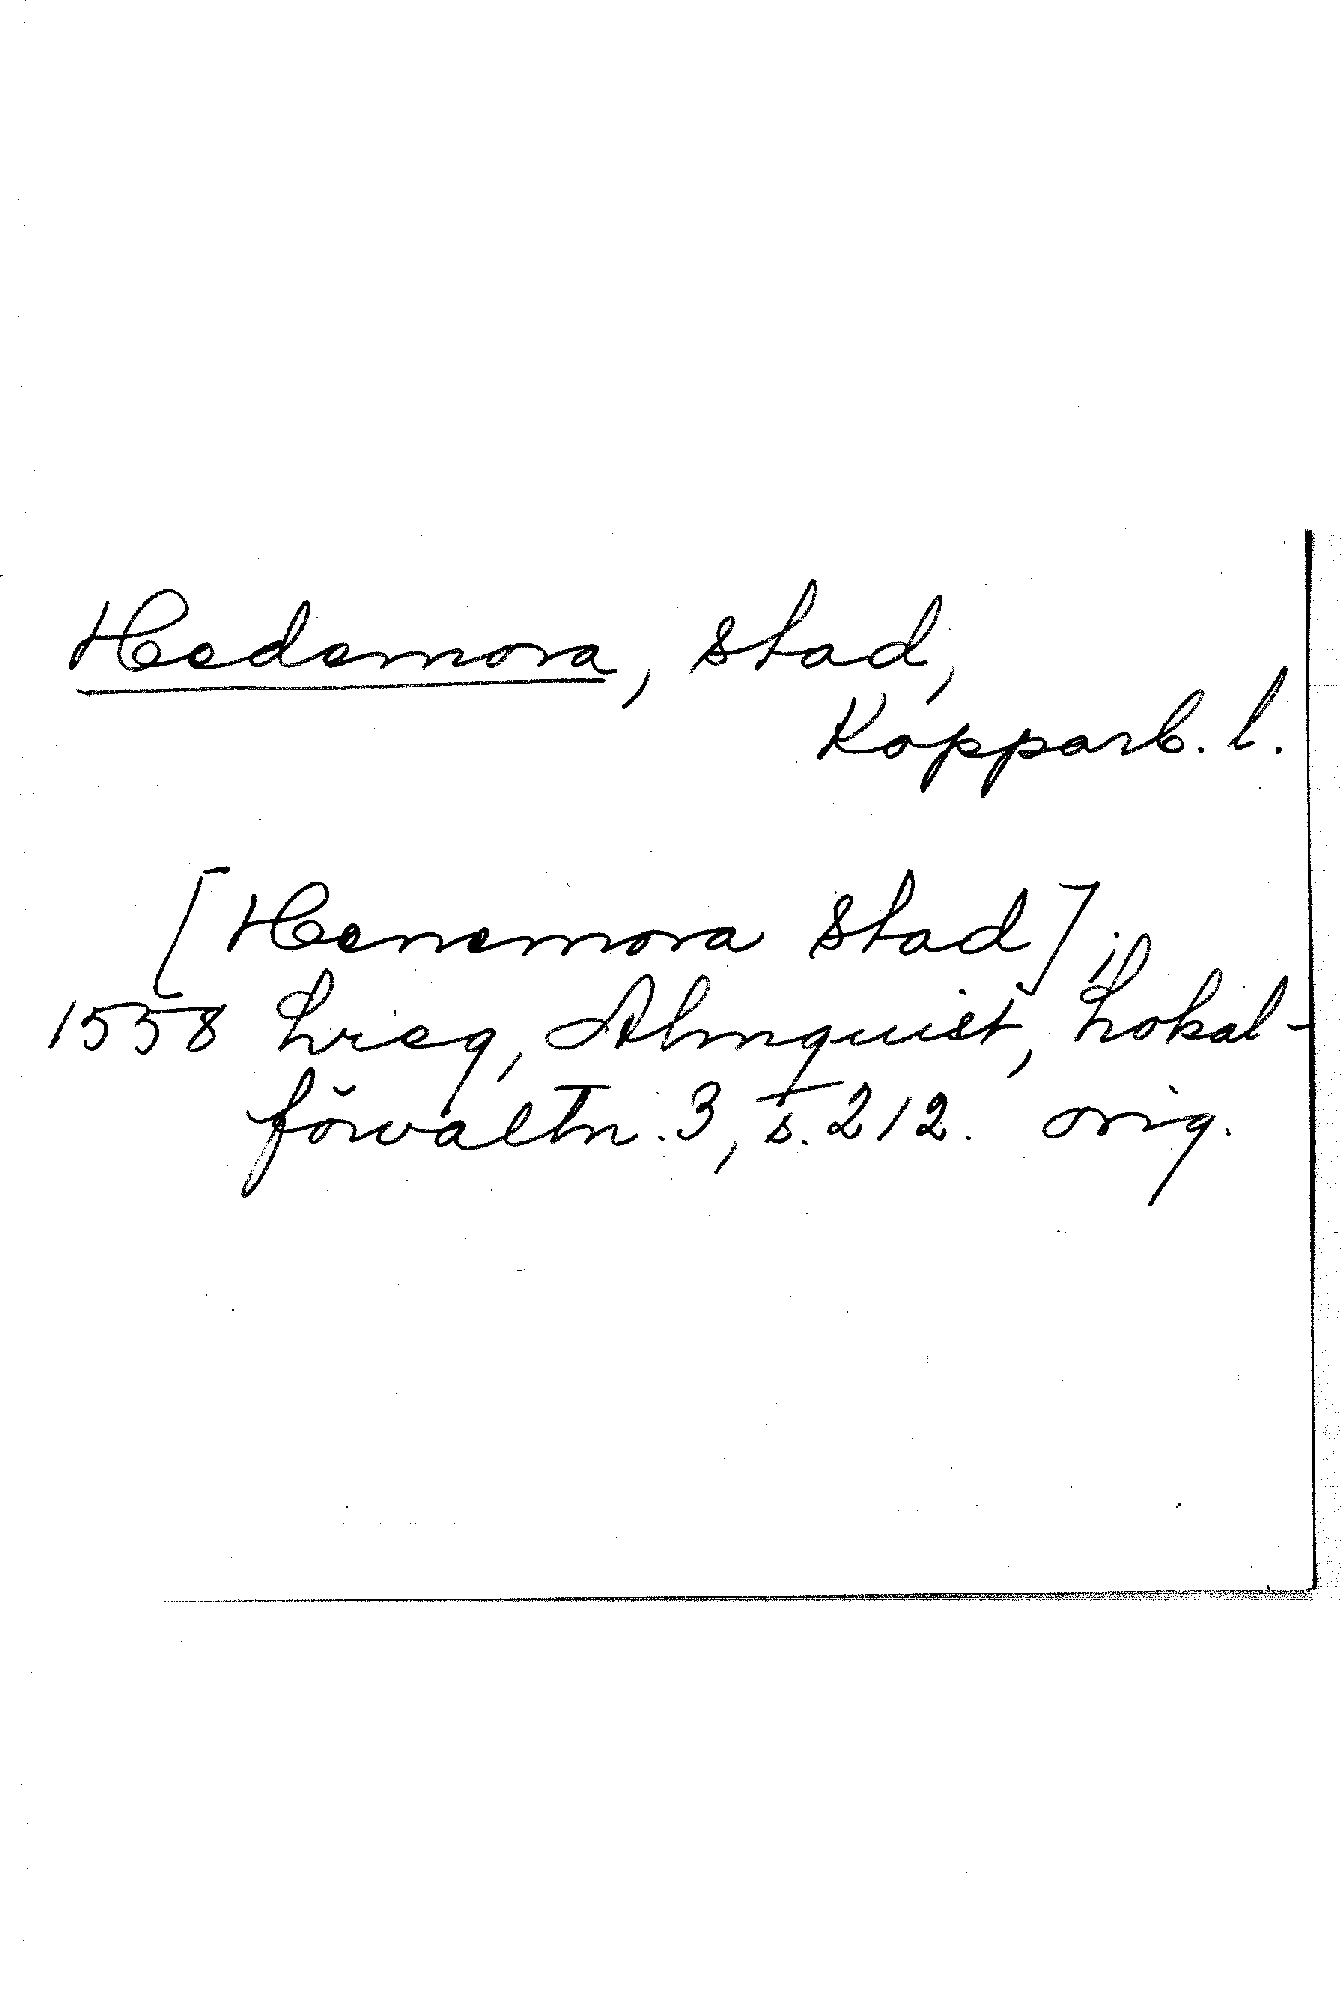 Hedemora, stad,
Kopparb. l.
[Henemora stad] i
1558 Lrieg, Almquist, Lokal-
förvaltn. 3, s. 212. orig.